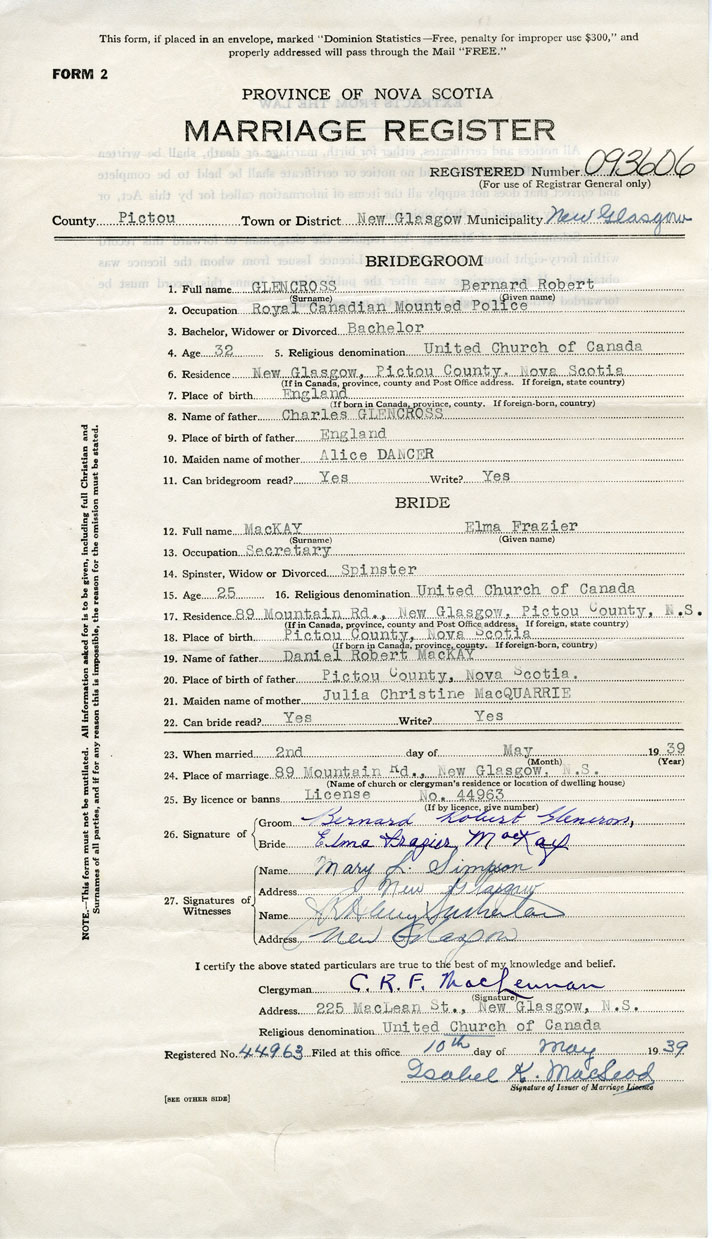 This form, if placed in an envelope, marked "Dominion Statistics—Free, penalty for improper use $300," and
properly addressed will pass through the Mail "FREE."
FORM 2
PROVINCE OF NOVA SCOTIA
MARRIAGE REGISTER
REGISTERED Number 093606
(For use of Registrar General only)
County Pictou Town or District New Glasgow Municipality New Glasgow
BRIDEGROOM
1. Full name GLENCROSS Bernard Robert
(Surname) (Given name)
2. Occupation Royal Canadian Mounted Police
3. Bachelor, Widower or Divorced Bachelor
4. Age 32 5. Religious denomination United Church of Canada
6. Residence New Glasgow, Pictou County. Nova Scotia
(If in Canada, province, county and Post Office address. If foreign, state country)
7. Place of birth England
(If born in Canada, province, county. If foreign-born, country)
8. Name of father Charles GLENCROSS
9. Place of birth of father England
10. Maiden name of mother Alice DANCER
11. Can bridegroom read? Yes Write? Yes
BRIDE
12. Full name MacKAY Elma Frazier
(Surname) (Given name)
13. Occupation Secretary
14. Spinster, Widow or Divorced Spinster
15. Age 25 16. Religious denomination United Church of Canada
17. Residence 89 Mountain Rd., New Glasgow, Pictou County, N.S.
(If in Canada, province, county and Post Office address. If foreign, state country)
18. Place of birth Pictou County, Nova Scotia
(If born in Canada, province, county. If foreign-born, country)
19. Name of father Daniel Robert MacKAY
20. Place of birth of father Pictou County, Nova Scotia.
21. Maiden name of mother Julia Christine MacQUARRIE
22. Can bride read? Yes Write? Yes
23. When married 2nd day of May 1939
(Month) (Year)
24. Place of marriage 89 Mountain Rd., New Glasgow, N.S.
(Name of church or clergyman's residence or location of dwelling house)
25. By licence or banns License No. 44963
(If by licence, give number)
26. Signature of
Groom Bernard Robert Glencross,
Bride Elma Frazier MacKay
27. Signatures of Witnesses
Name Mary L. Simpson
Address New Glasgow
Name Sutherland
Address New Glasgow
I certify the above stated particulars are true to the best of my knowledge and belief.
Clergyman C. R. F. MacLennan
(Signature)
Address 225 MacLean St., New Glasgow, N.S.
Religious denomination United Church of Canada
Registered No. 44963 Filed at this office 10th day of May 1939
Isabel K. MacLeod
Signature of Issuer of Marriage Licence
[SEE OTHER SIDE]
NOTE.—This form must not be mutilated. All information asked for is to be given, including full Christian and
Surnames of all parties, and if for any reason this is impossible, the reason for the omission must be stated.